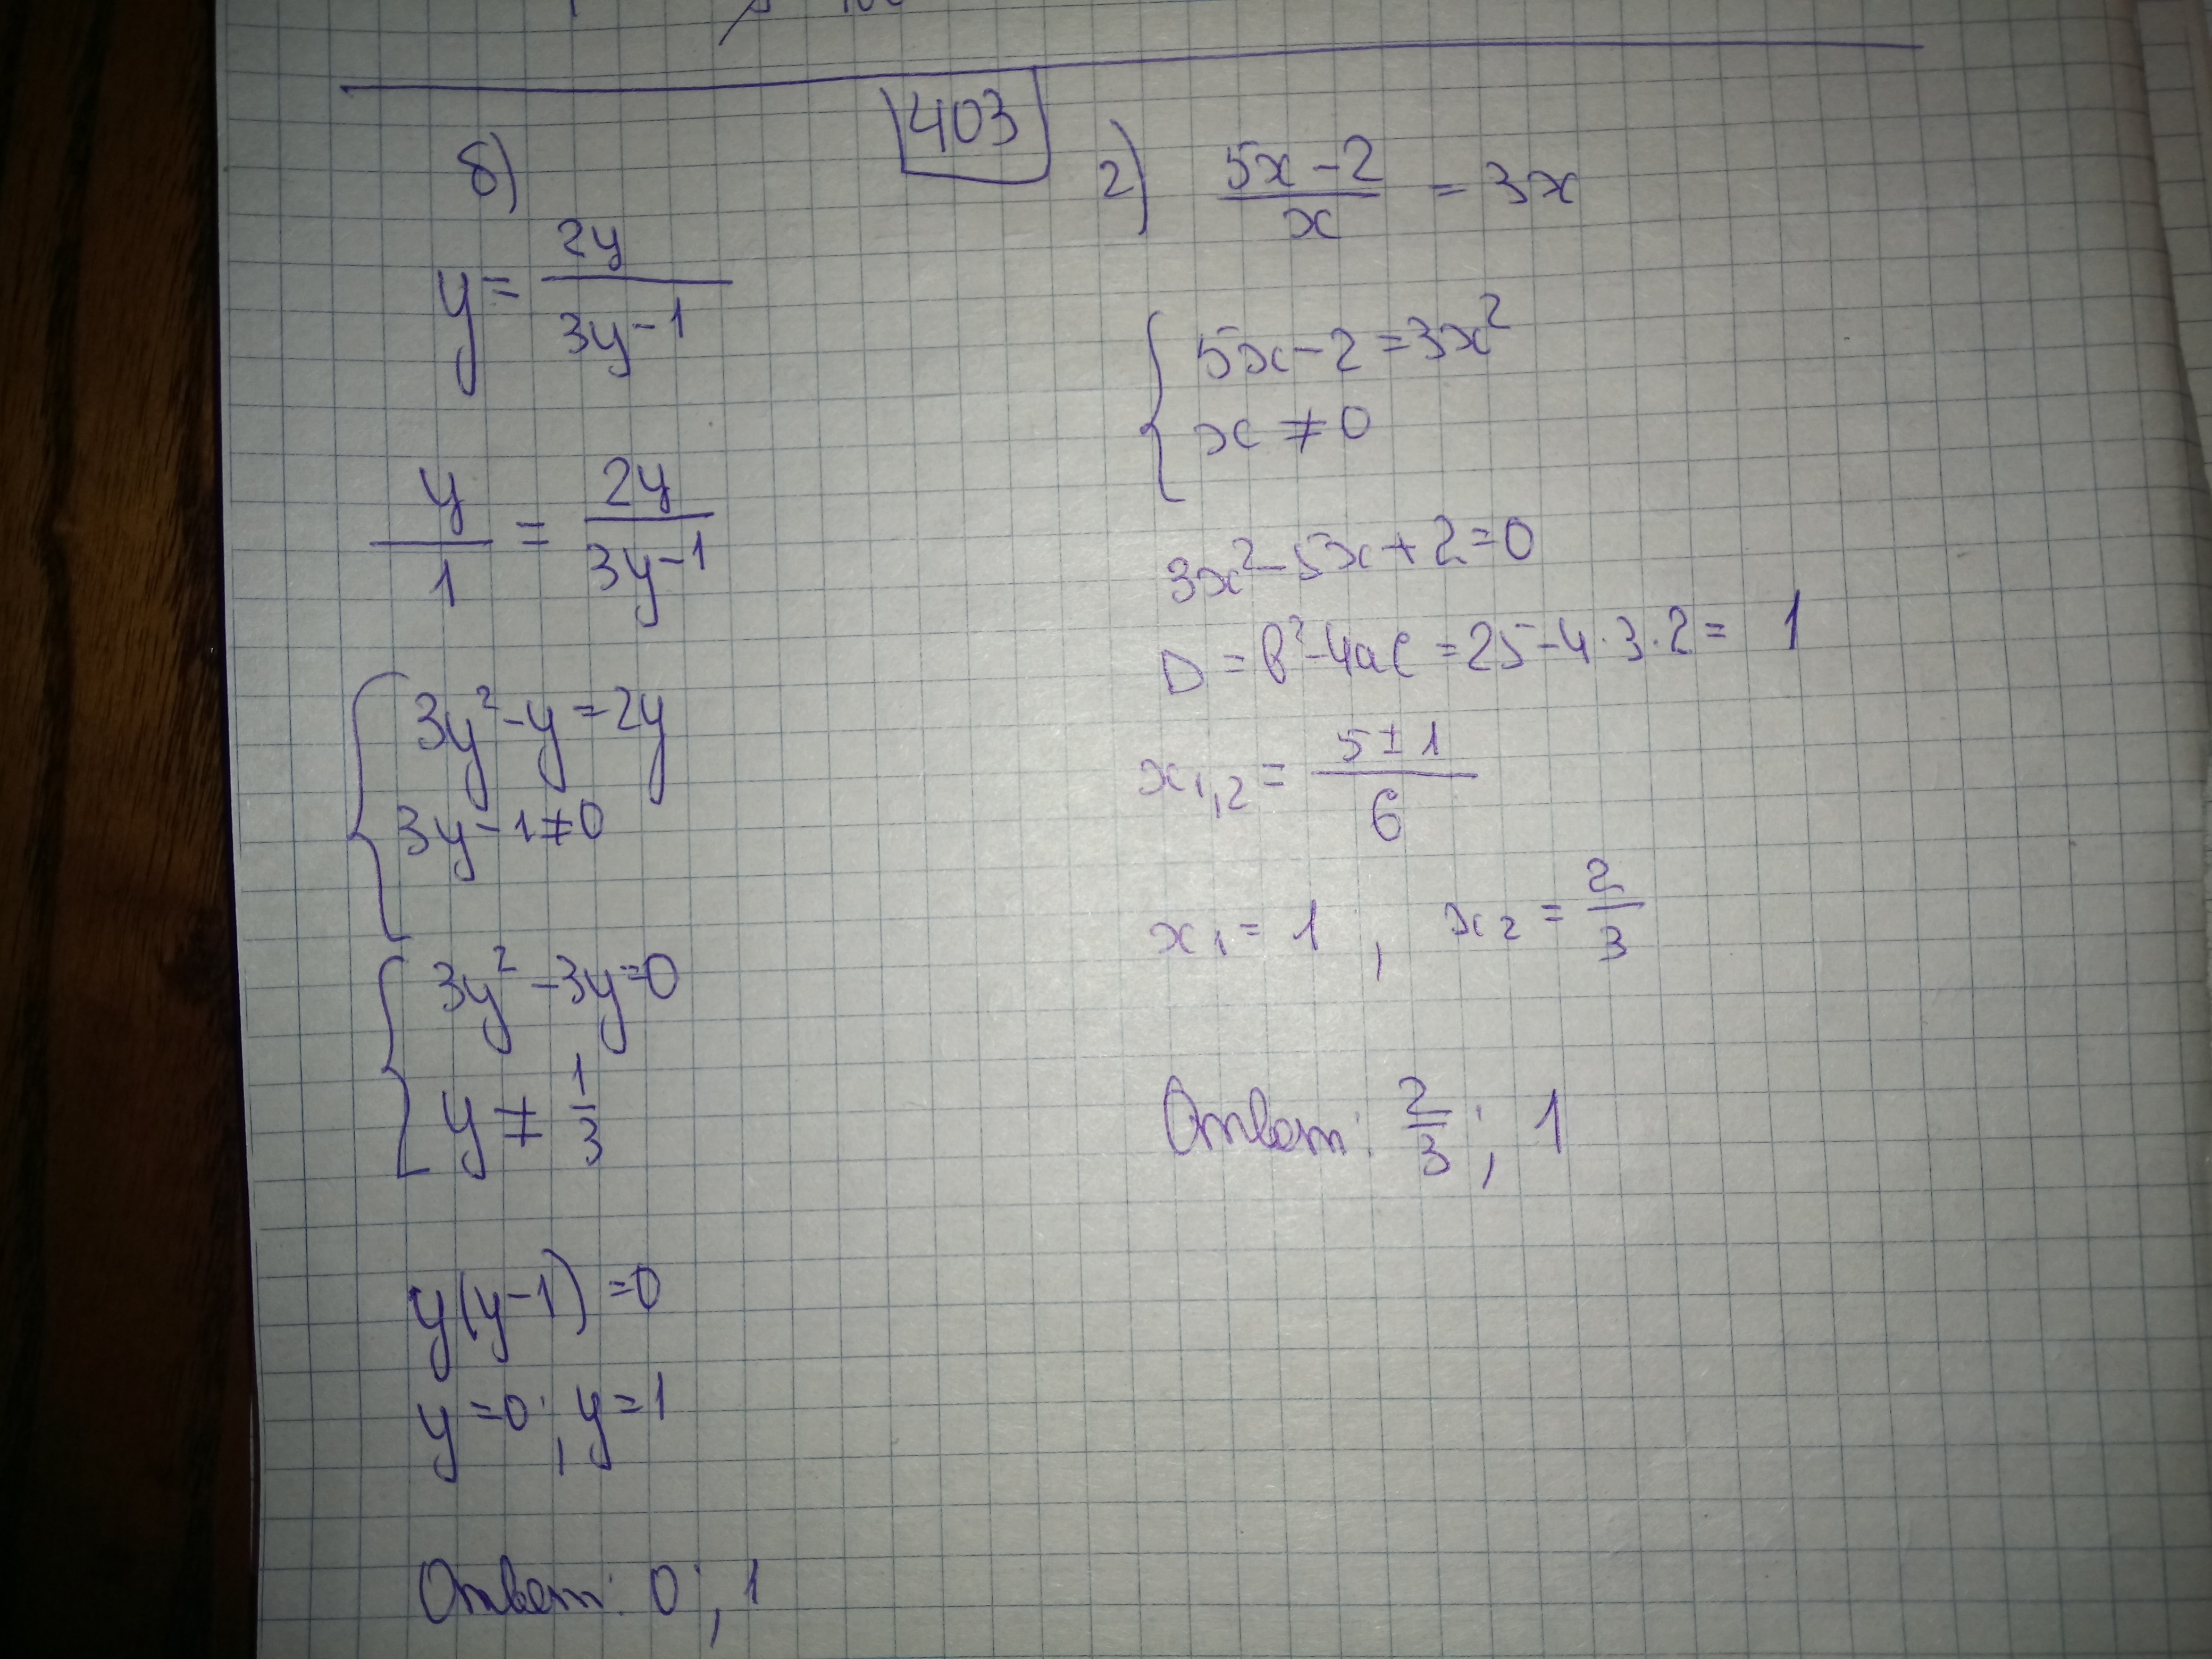 403
б)
y = 2y / (3y-1)
y/1 = 2y / (3y-1)
{ 3y² - y = 2y
3y - 1 ≠ 0
{ 3y² - 3y = 0
y ≠ 1/3
y(y-1) = 0
y = 0 ; y = 1
Ответ: 0 ; 1
г) (5x - 2) / x = 3x
{ 5x - 2 = 3x²
x ≠ 0
3x² - 5x + 2 = 0
D = b² - 4ac = 25 - 4·3·2 = 1
x₁,₂ = (5 ± 1) / 6
x₁ = 1 , x₂ = 2/3
Ответ: 2/3 ; 1